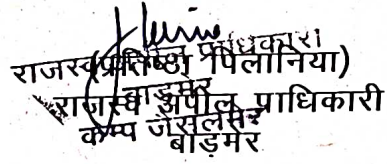 राजस्व अपील प्राधिकारी
(प्रतिष्ठा पिलानिया)
बाड़मेर
राजस्व अपील प्राधिकारी
कैम्प जैसलमेर
बाड़मेर